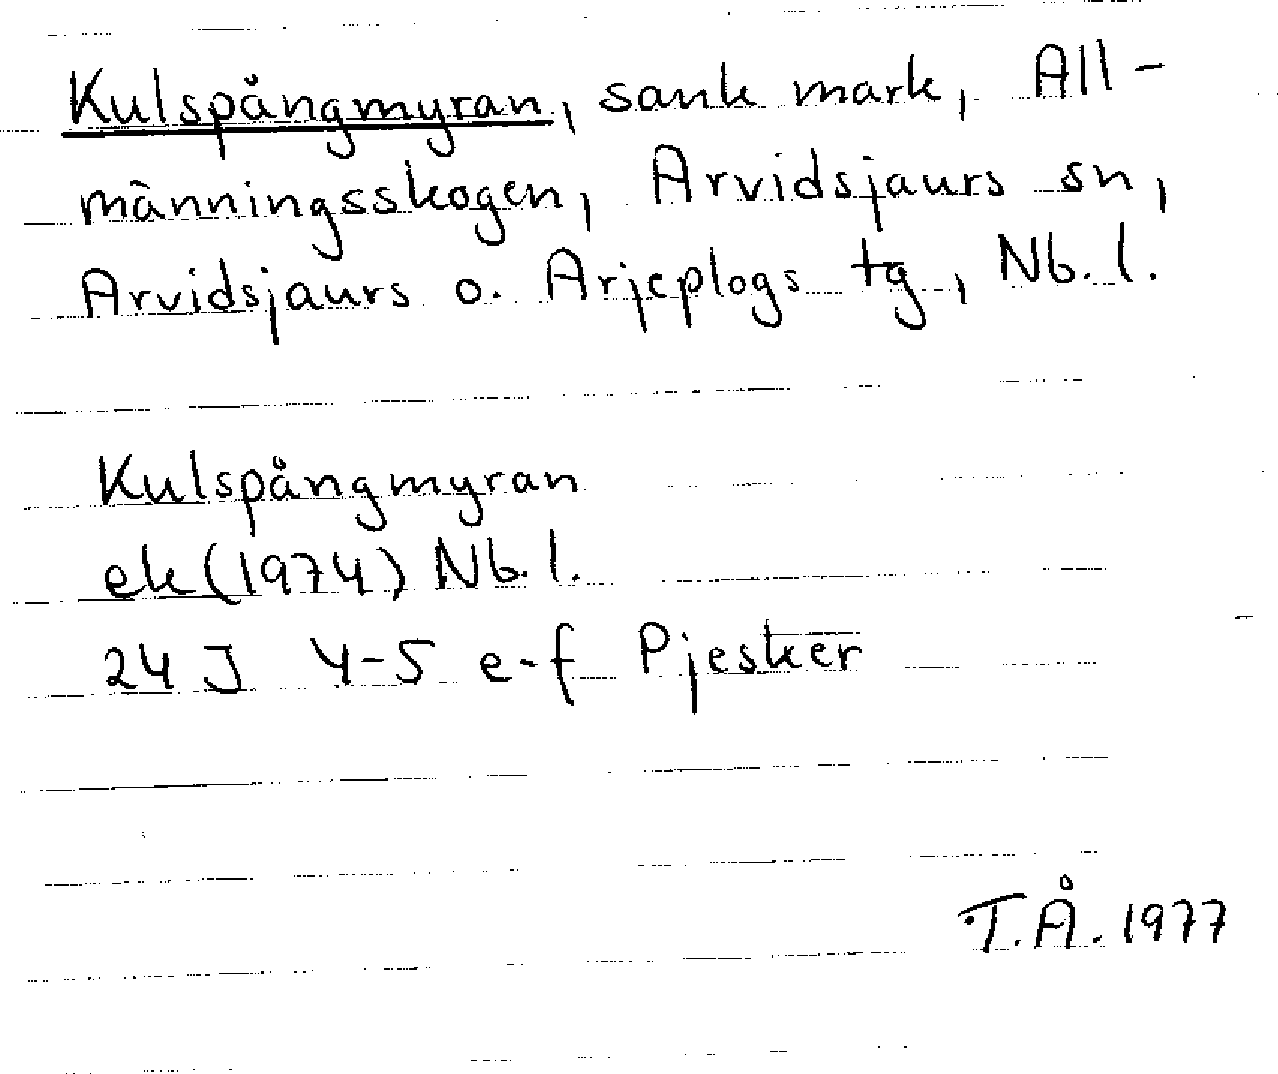 Kulspångmyran, sank mark, All-
männingsskogen, Arvidsjaurs sn,
Arvidsjaurs o. Arjeplogs tg, Nb. l.
Kulspångmyran
ek (1974) Nb. l.
24 J 4-5 e-f Pjesker
T.Å. 1977